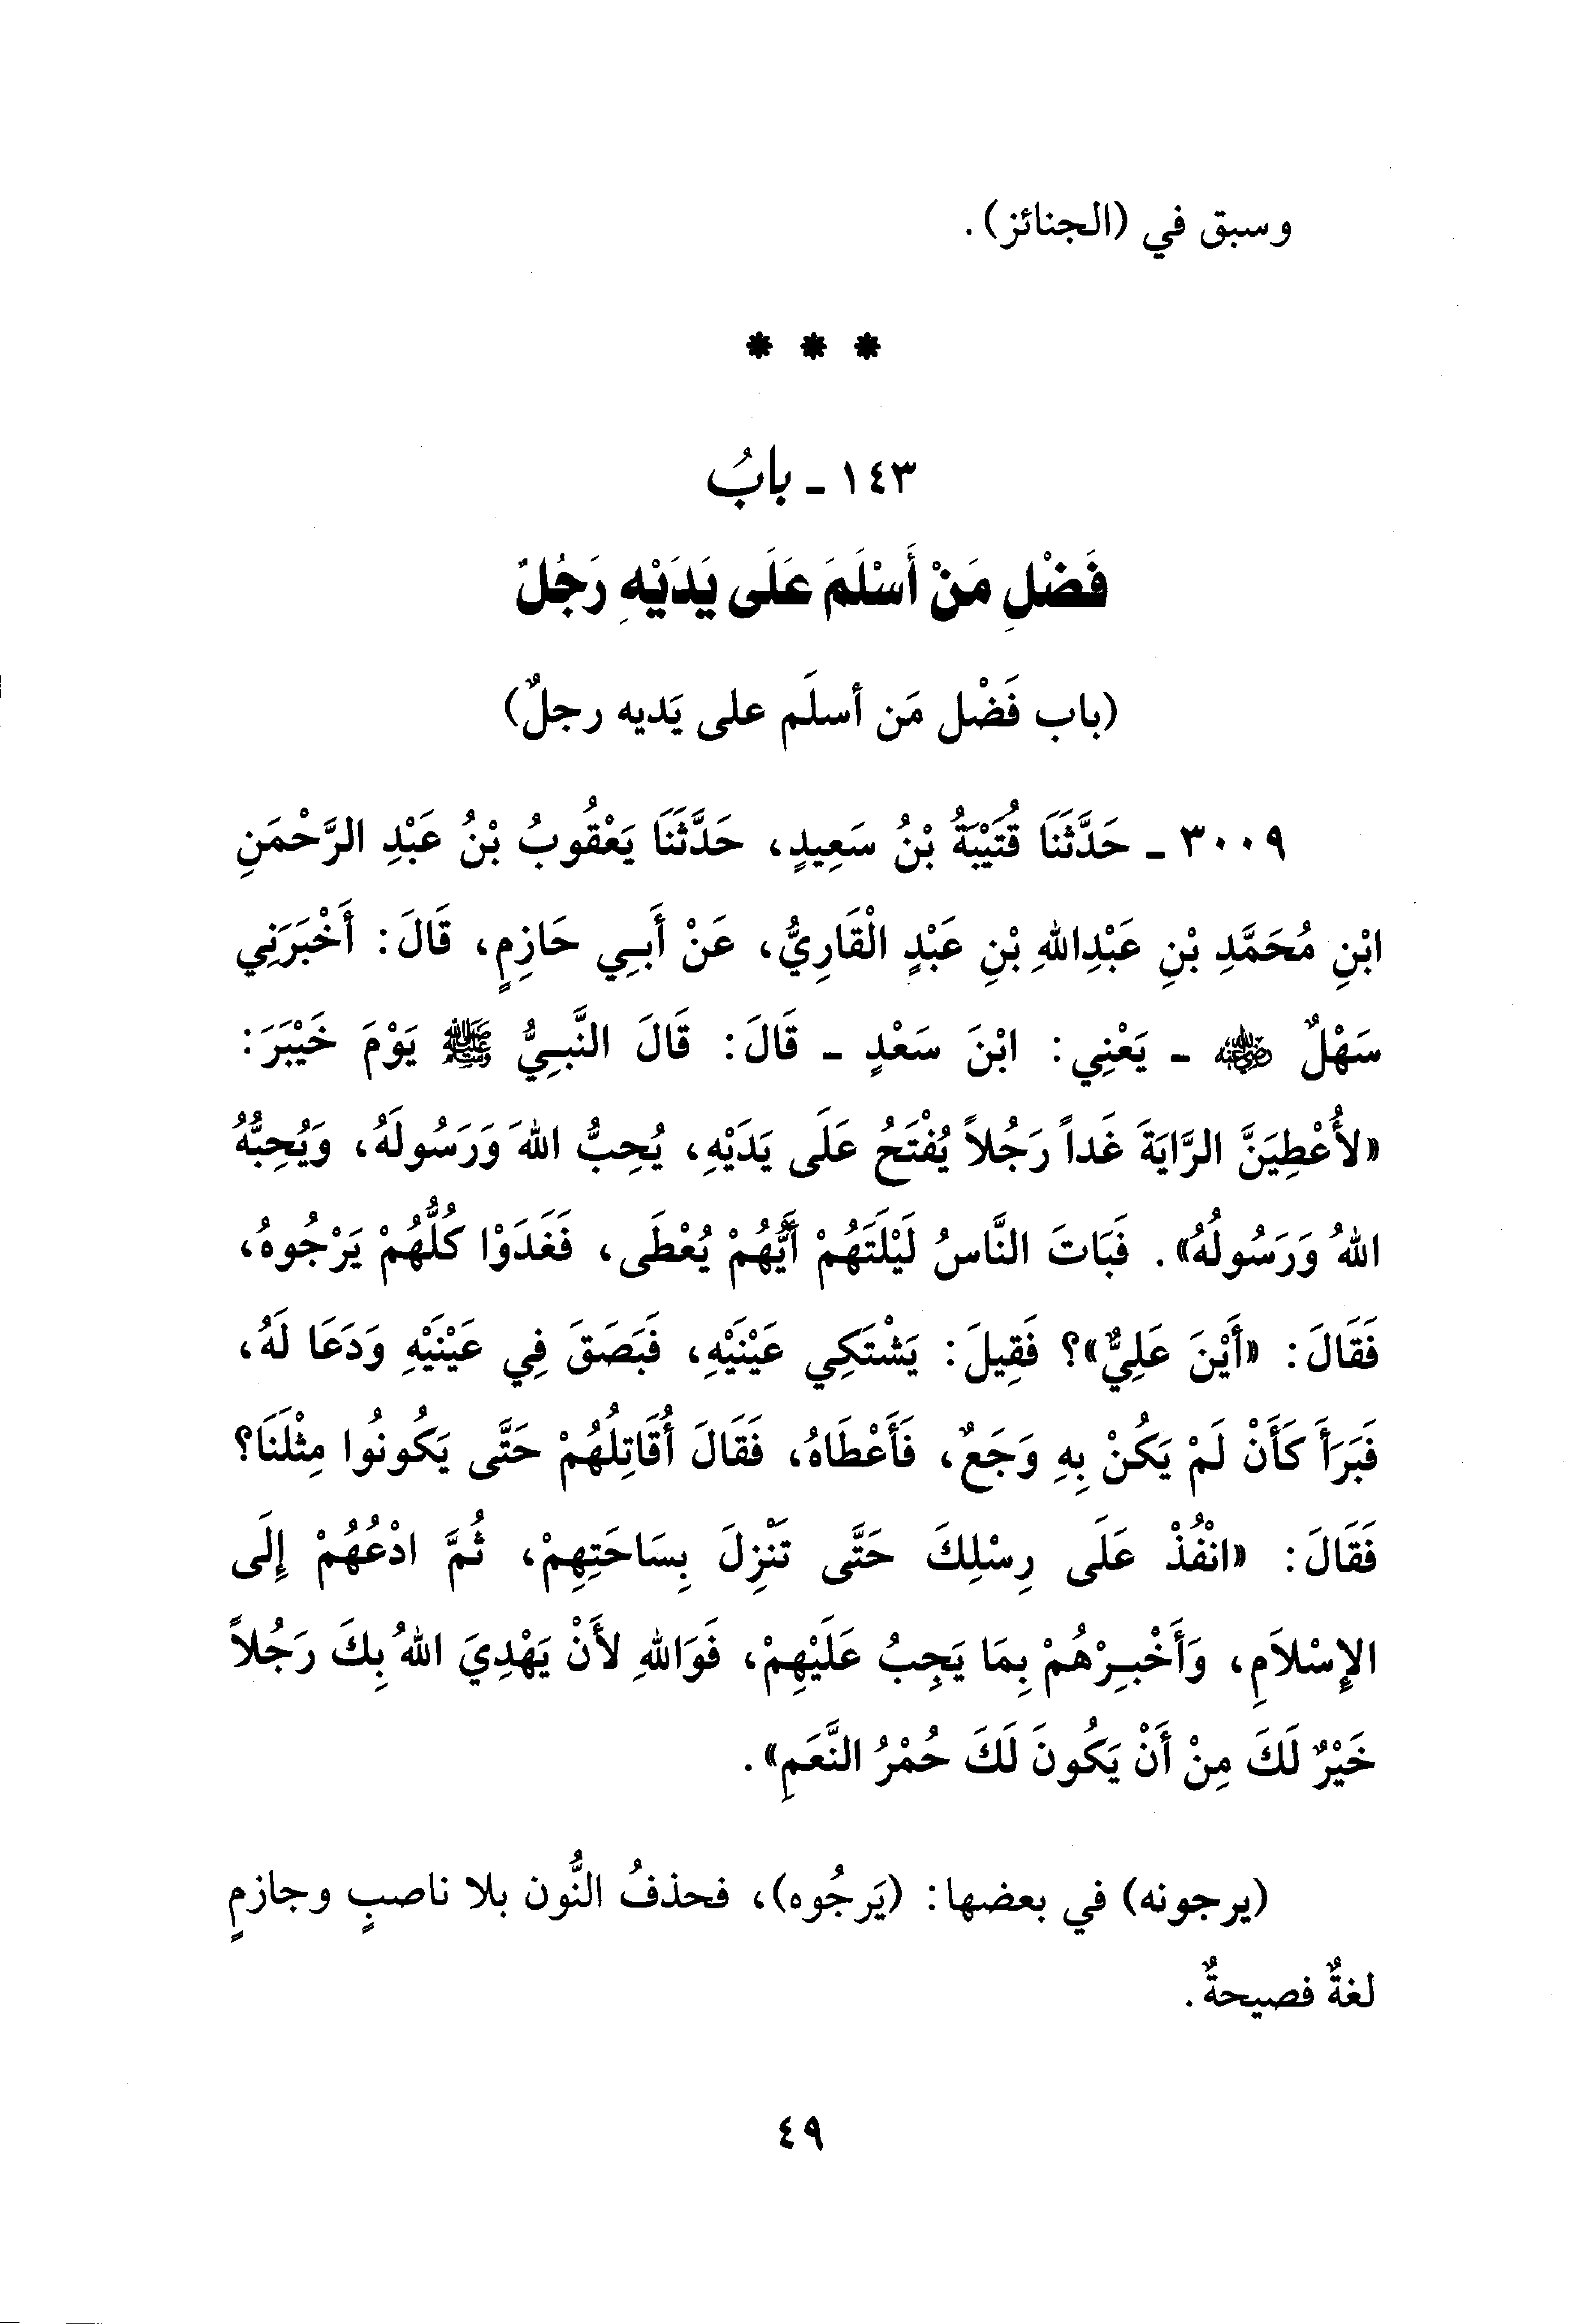 وسبق في (الجنائز).
* * *
١٤٣ - بابُ
فَضْلِ مَنْ أَسْلَمَ عَلَى يَدَيْهِ رَجُلٌ
(باب فَضْل مَن أسلَم على يَديه رجلٌ)
٣٠٠٩ - حَدَّثَنَا قُتَيْبَةُ بْنُ سَعِيدٍ، حَدَّثَنَا يَعْقُوبُ بْنُ عَبْدِ الرَّحْمَنِ
ابْنِ مُحَمَّدِ بْنِ عَبْدِاللهِ بْنِ عَبْدٍ الْقَارِيُّ، عَنْ أَبِي حَازِمٍ، قَالَ: أَخْبَرَنِي
سَهْلٌ ﵁ - يَعْنِي: ابْنَ سَعْدٍ - قَالَ: قَالَ النَّبِيُّ ﷺ يَوْمَ خَيْبَرَ:
«لأُعْطِيَنَّ الرَّايَةَ غَداً رَجُلاً يُفْتَحُ عَلَى يَدَيْهِ، يُحِبُّ اللهَ وَرَسُولَهُ، وَيُحِبُّهُ
اللهُ وَرَسُولُهُ». فَبَاتَ النَّاسُ لَيْلَتَهُمْ أَيُّهُمْ يُعْطَى، فَغَدَوْا كُلُّهُمْ يَرْجُوهُ،
فَقَالَ: «أَيْنَ عَلِيٌّ»؟ فَقِيلَ: يَشْتَكِي عَيْنَيْهِ، فَبَصَقَ فِي عَيْنَيْهِ وَدَعَا لَهُ،
فَبَرَأَ كَأَنْ لَمْ يَكُنْ بِهِ وَجَعٌ، فَأَعْطَاهُ، فَقَالَ أُقَاتِلُهُمْ حَتَّى يَكُونُوا مِثْلَنَا؟
فَقَالَ: «انْفُذْ عَلَى رِسْلِكَ حَتَّى تَنْزِلَ بِسَاحَتِهِمْ، ثُمَّ ادْعُهُمْ إِلَى
الإِسْلاَمِ، وَأَخْبِرْهُمْ بِمَا يَجِبُ عَلَيْهِمْ، فَوَاللهِ لأَنْ يَهْدِيَ اللهُ بِكَ رَجُلاً
خَيْرٌ لَكَ مِنْ أَنْ يَكُونَ لَكَ حُمْرُ النَّعَمِ».
(يرجونه) في بعضها: (يَرجُوه)، فحذفُ النُّون بلا ناصبٍ وجازمٍ
لغةٌ فصيحةٌ.
٤٩